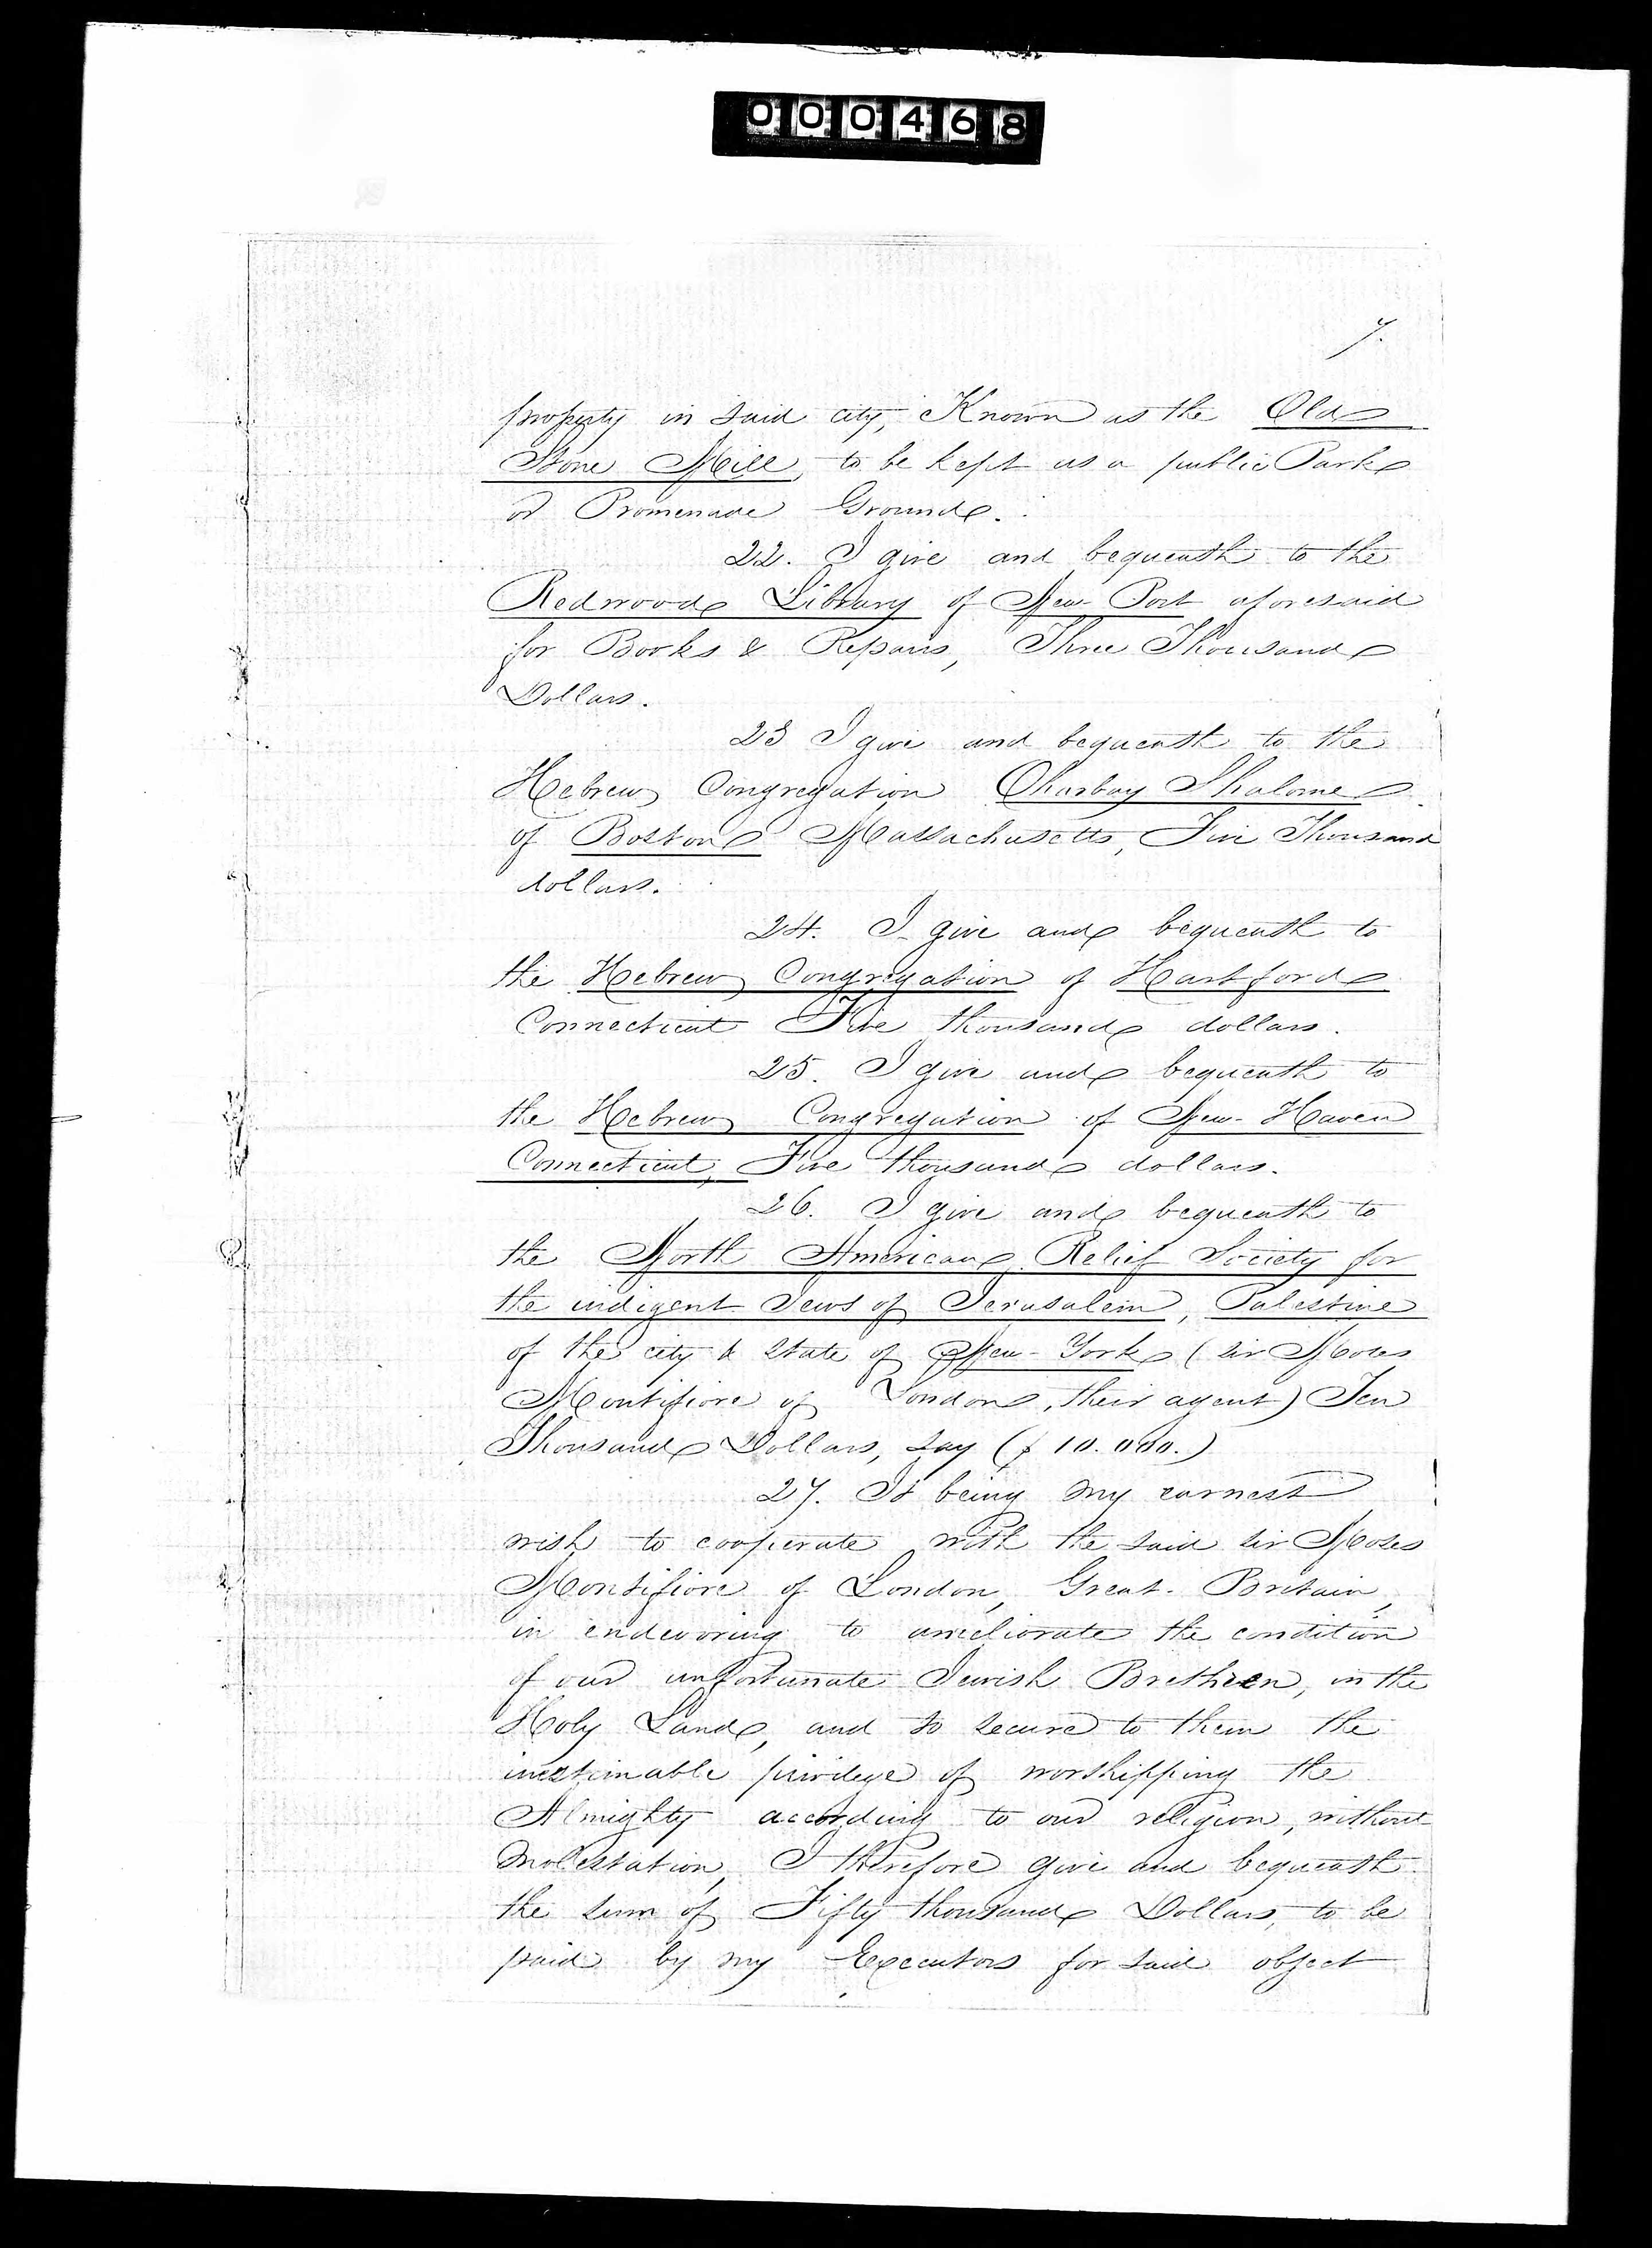 000468
7.
property in said city, Known as the Old
Stone Mill, to be kept as a public Park
or Promenade Ground.
22. I give and bequeath to the
Redwood Library of New-Port aforesaid
for Books & Repairs, Three Thousand
Dollars.
23 I give and bequeath to the
Hebrew Congregation Oharbay Shalome
of Boston Massachusetts, Five Thousand
dollars.
24. I give and bequeath to
the Hebrew Congregation of Hartford
Connecticut Five thousand dollars.
25. I give and bequeath to
the Hebrew Congregation of New-Haven
Connecticut, Five thousand dollars.
26. I give and bequeath to
the North American Relief Society for
the indigent Jews of Jerusalem, Palestine
of the city & state of New-York (sir Moses
Montifiore of London, their agent) Ten
Thousand Dollars, say ($ 10.000.)
27. It being my earnest
wish to cooperate with the said sir Moses
Montifiore of London, Great-Britain,
in endevoring to ameliorate the condition
of our unfortunate Jewish Brethren, in the
Holy Land, and to secure to them the
inestimable privilege of worshipping the
Almighty according to our religion, without
molestation, I therefore give and bequeath
the sum of Fifty thousand Dollars, to be
paid by my Executors for said object